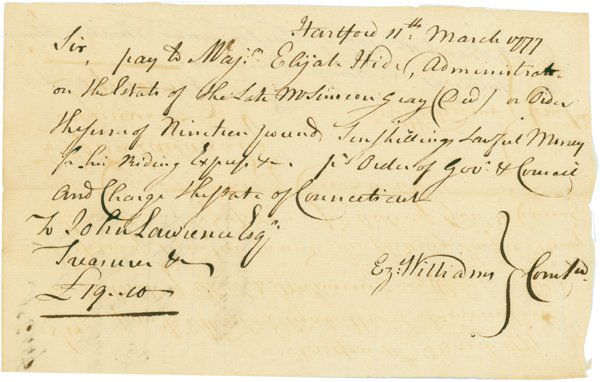 Hartford 11th March 1777
Sir,
pay to Majr Elijah Hide, Administrator
on the Estate of the Late Mr Simeon Gray (Decd) or Order
the sum of Nineteen pound Ten shillings Lawful Money
for his Riding Expense &c. pr Order of Govr & Council
and Charge the State of Connecticut
To John Lawrence Esqr
Treasurer &c
£19..10
Ez. Williams } Comtee